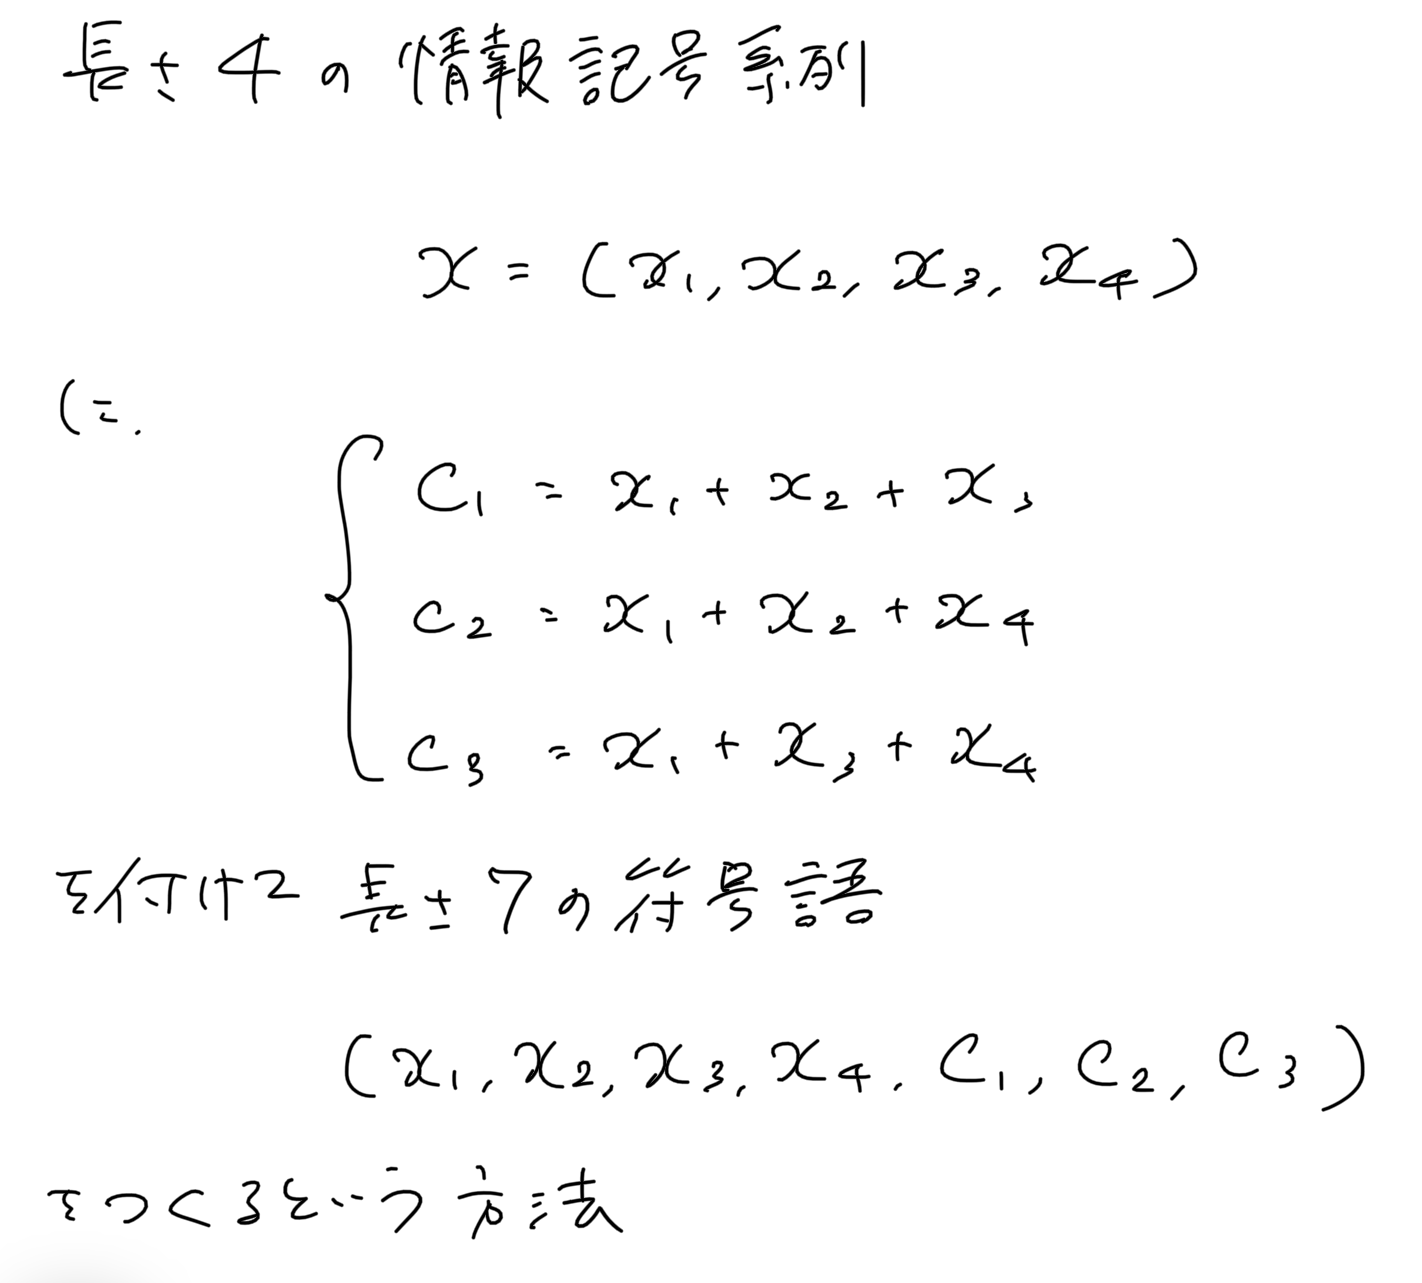 長さ4の情報記号系列
x = (x₁, x₂, x₃, x₄)
に、
c₁ = x₁ + x₂ + x₃
c₂ = x₁ + x₂ + x₄
c₃ = x₁ + x₃ + x₄
を付けて長さ7の符号語
(x₁, x₂, x₃, x₄, c₁, c₂, c₃)
をつくるという方法